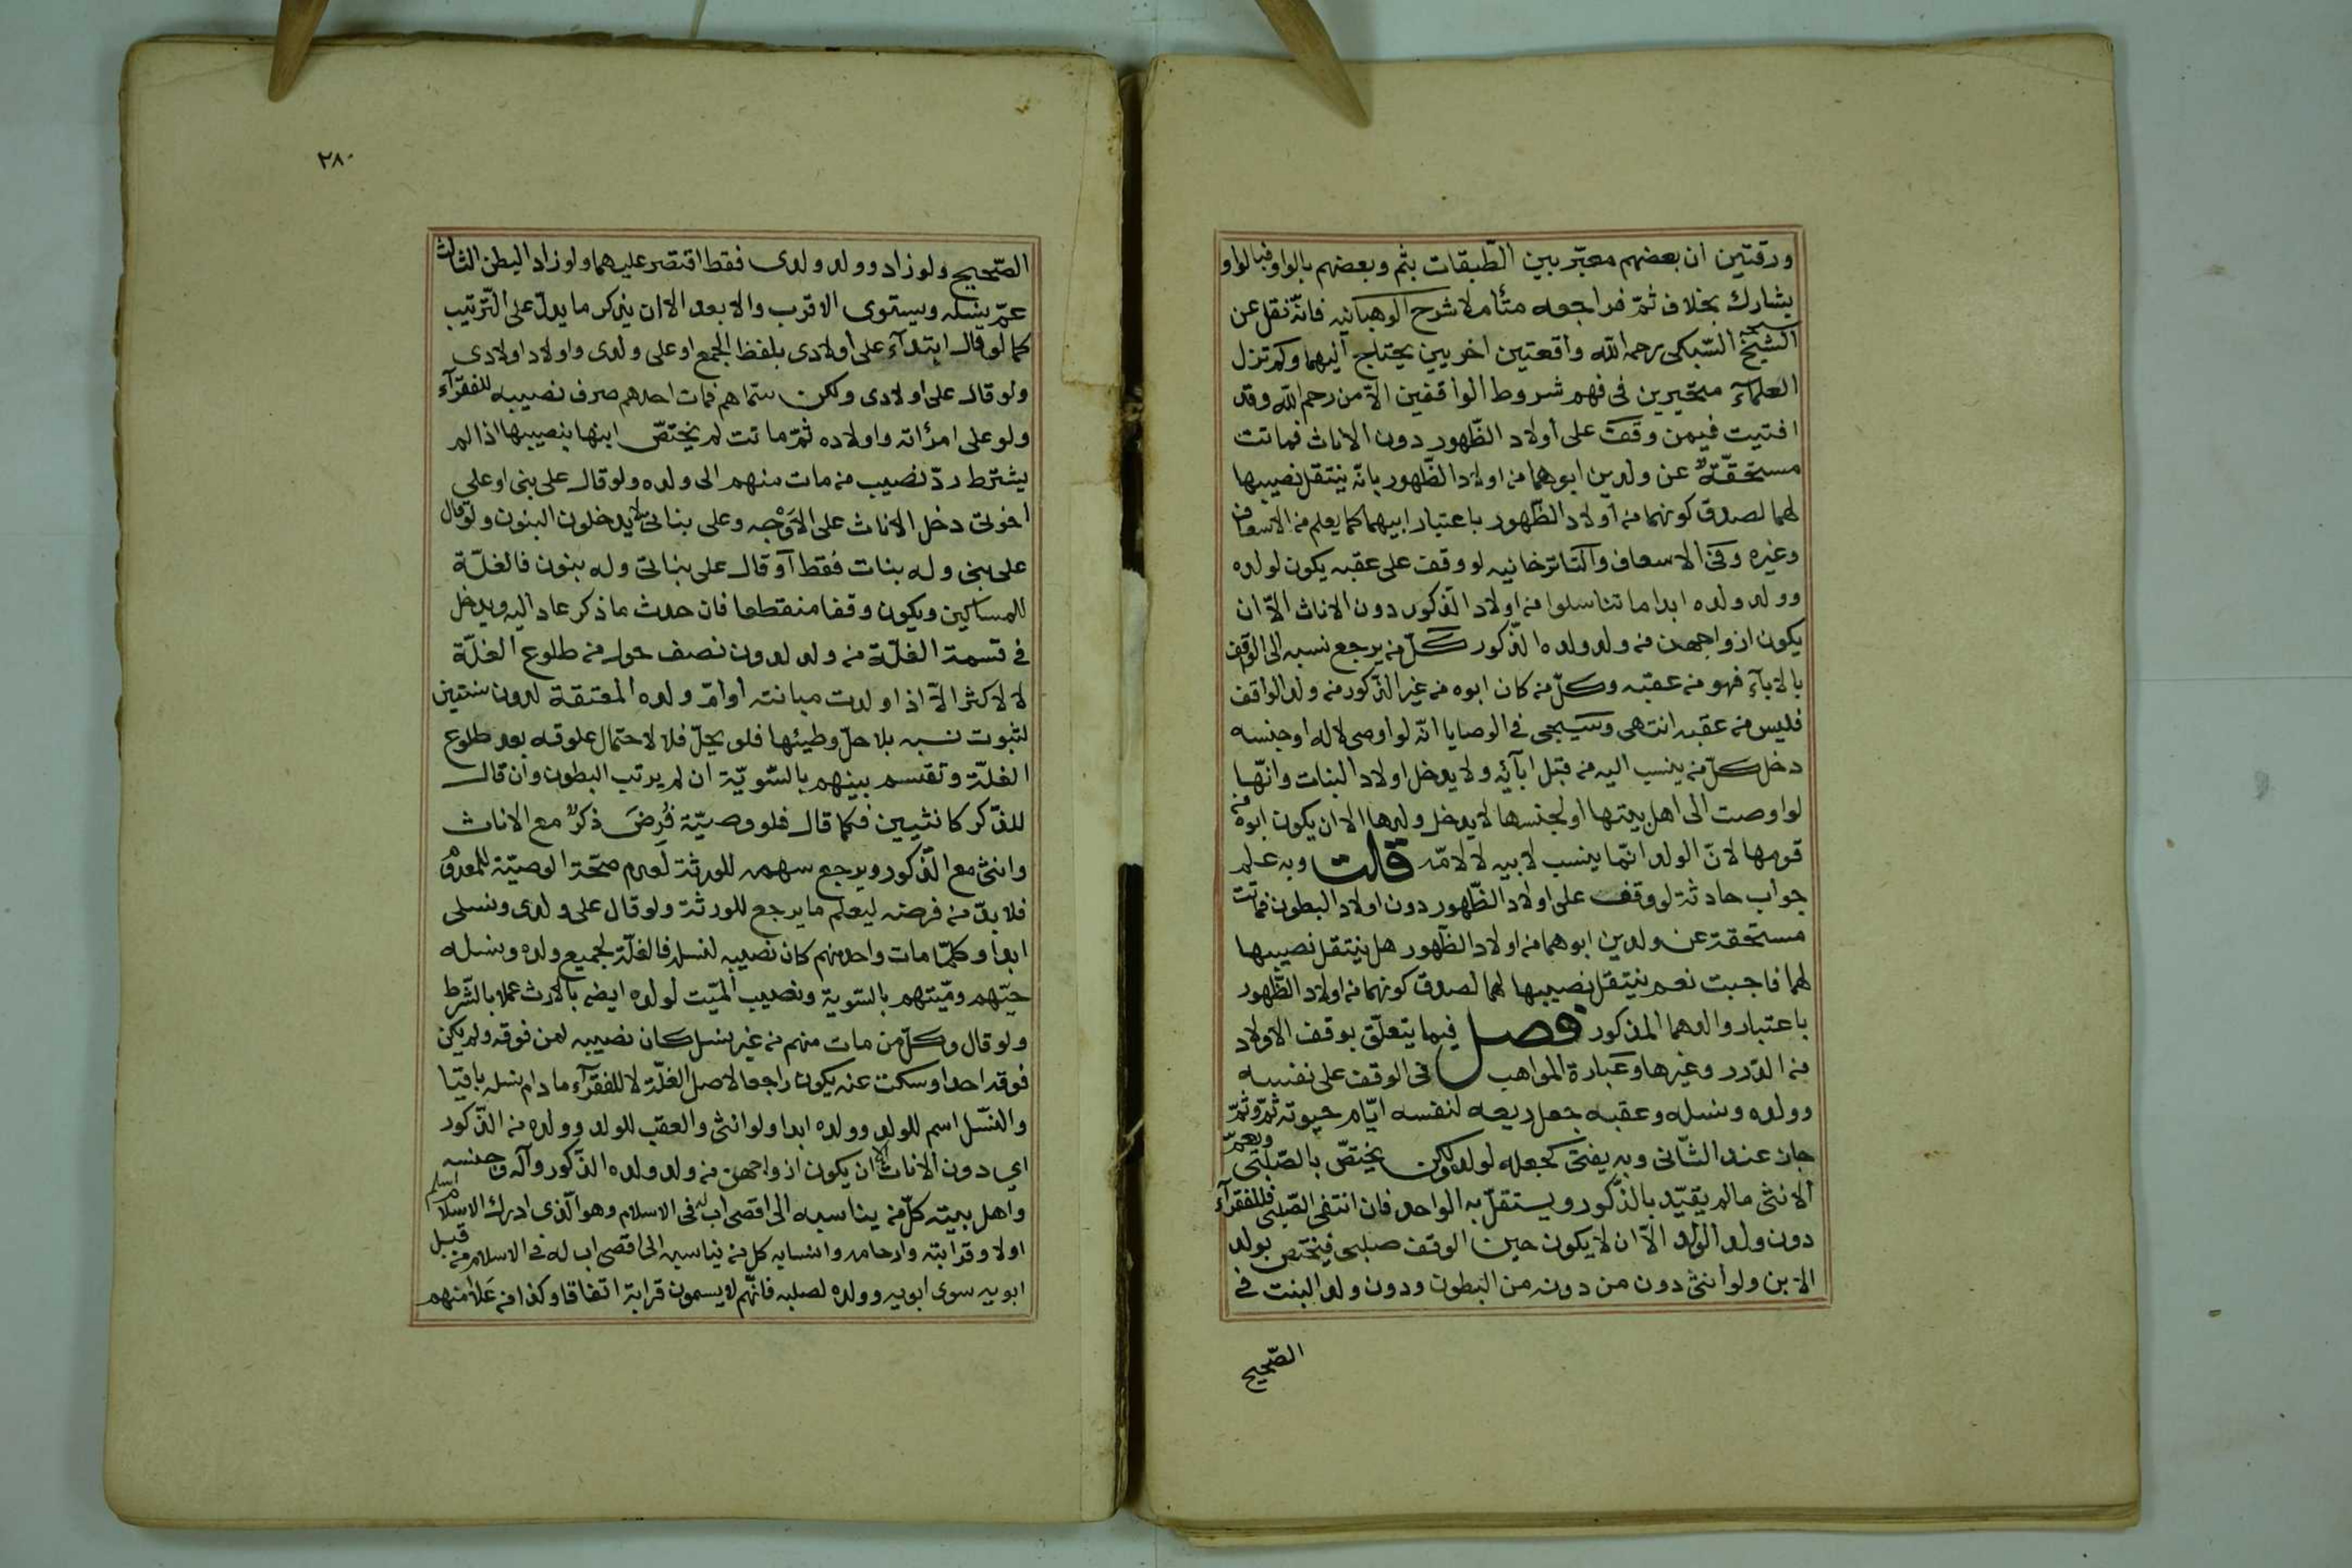 ورقتين ان بعضهم معبّر بين الطّبقات بثم وبعضهم بالواو فبالواو
يشارك بخلاف ثمّ فراجعه متأملا شرح الوهبانيه فانّه نقل عن
الشيخ السّبكى رحمه الله واقعتين اخريين يحتاج اليهما ولم تزل
العلمآء متحيرين فى فهم شروط الواقفين الاّ من رحم الله وقد
افتيت فيمن وقف على أولاد الظّهور دون الاناث فماتت
مستحقّة عن ولدين ابوهما من اولاد الظّهور بانّه ينتقل نصيبها
لهما لصدق كونهما من أولاد الظّهور باعتبار ابيهما كما يعلم من الاسعاف
وغيره وفى الاسعاف والتاترخانيه لو وقف على عقبه يكون لولده
وولد ولده ابدا ما تناسلوا من اولاد الذكور دون الاناث الاّ ان
يكون ازواجهن من ولد ولده الذكور كلّ من يرجع نسبه الى الوقف
بالابآء فهو من عقبه وكلّ من كان ابوه من غير الذّكور من ولد الواقف
فليس من عقبه انتهى وسيجى فى الوصايا انّه لو اوصى لاله اوجنسه
دخل كلّ من ينسب اليه من قبل ابآئه ولا يدخل اولاد البنات وانّها
لو اوصت الى اهل بيتها او لجنسها لا يدخل ولدها الا ان يكون ابوه من
قومها لانّ الولد انّما ينسب لابيه لا لامّه قلت وبه علم
جواب حادثة لو وقف على اولاد الظّهور دون اولاد البطون فماتت
مستحقة عن ولدين ابوهما من اولاد الظّهور هل ينتقل نصيبها
لهما فاجبت نعم ينتقل نصيبها لهما لصدق كونهما من اولاد الظّهور
باعتبار والدهما المذكور فصل فيما يتعلّق بوقف الاولاد
من الدّرر وغيرها وعبارة المواهب فى الوقف على نفسه
وولده ونسله وعقبه جعل ريعه لنفسه ايّام حيوته ثمّ وثمّ
جاز عند الثّانى وبه يفتى كجعله لولده ولكن يختصّ بالصّلبى ويعمّ
الانثى مالم يقيّد بالذّكور ويستقلّ به الواحد فان انتفى الصّلبى فللفقرآء
دون ولد الولد الاّ ان لا يكون حين الوقف صلبى فيختص بولد
الابن ولو أنثى دون من دونه من البطون ودون ولد البنت فى
الصّحيح
٢٨٠
الصّحيح ولو زاد وولد ولدى فقط اقتصر عليهما ولو زاد البطن الثالث
عمّ نسله ويستوى الاقرب والابعد الا ان يذكر ما يدلّ على التّرتيب
كما لو قال ابتدآء على أولادى بلفظ الجمع او على ولدى واولاد اولادى
ولو قال على اولادى ولكن سمّاهم فمات احدهم صرف نصيبه للفقرآء
ولو على امرأته واولاده ثمّ ماتت لم يختصّ ابنها بنصيبها اذا لم
يشترط ردّ نصيب من مات منهم الى ولده ولو قال على بنى او على
اخوتى دخل الاناث على الاَوْجه وعلى بناتى لا يدخلون البنون ولو قال
على بنى وله بنات فقط آو قال على بناتى وله بنون فالغلّة
للمساكين ويكون وقفا منقطعا فان حدث ما ذكر عاد اليه ويدخل
فى قسمة الغلّة من ولد لدون نصف حول من طلوع الغلّة
لا لاكثر الاّ اذا ولدت مبانته أو امّ ولده المعتقة لدون سنتين
لثبوت نسبه بلا حلّ وطيئها فلو يحلّ فلا لاحتمال علوقه بعد طلوع
الغلّة وتقسم بينهم بالسّويّة ان لم يرتب البطون وان قال
للذّكر كانثيين فكما قال فلو وصيّة فُرِضَ ذكرٌ مع الاناث
وانثى مع الذّكور ويرجع سهمه للورثة لعدم صحّة الوصيّة للمعدوم
فلا بدّ من فرضه ليعلم ما يرجع للورثة ولو قال على ولدى ونسلى
ابدا وكلّما مات واحد منهم كان نصيبه لنسله فالغلّة لجميع ولده ونسله
حيّهم وميّتهم بالسّوية ونصيب الميّت لولده ايضا بالارث عملا بالشّرط
ولو قال وكلّ من مات منهم من غير نسل كان نصيبه لمن فوقه ولم يكن
فوقه احد او سكت عنه يكون راجعا لاصل الغلّة لا للفقرآء ما دام نسله باقيّا
والنّسل اسم للولد وولده ابدا ولو انثى والعقب للولد وولده من الذّكور
اي دون الاناث الا ان يكون ازواجهن من ولد ولده الذّكور وآله وجنسه
واهل بيته كلّ من يناسبه الى اقصى اب له فى الاسلام وهو الّذى ادرك الاسلام اسلم
اولا وقرابته وارحامه وانسابه كل من يناسبه الى اقصى اب له فى الاسلام من قبل
ابويه سوى ابويه وولده لصلبه فانّهم لا يسمون قرابة اتفاقا وكذا من عَلا منهم